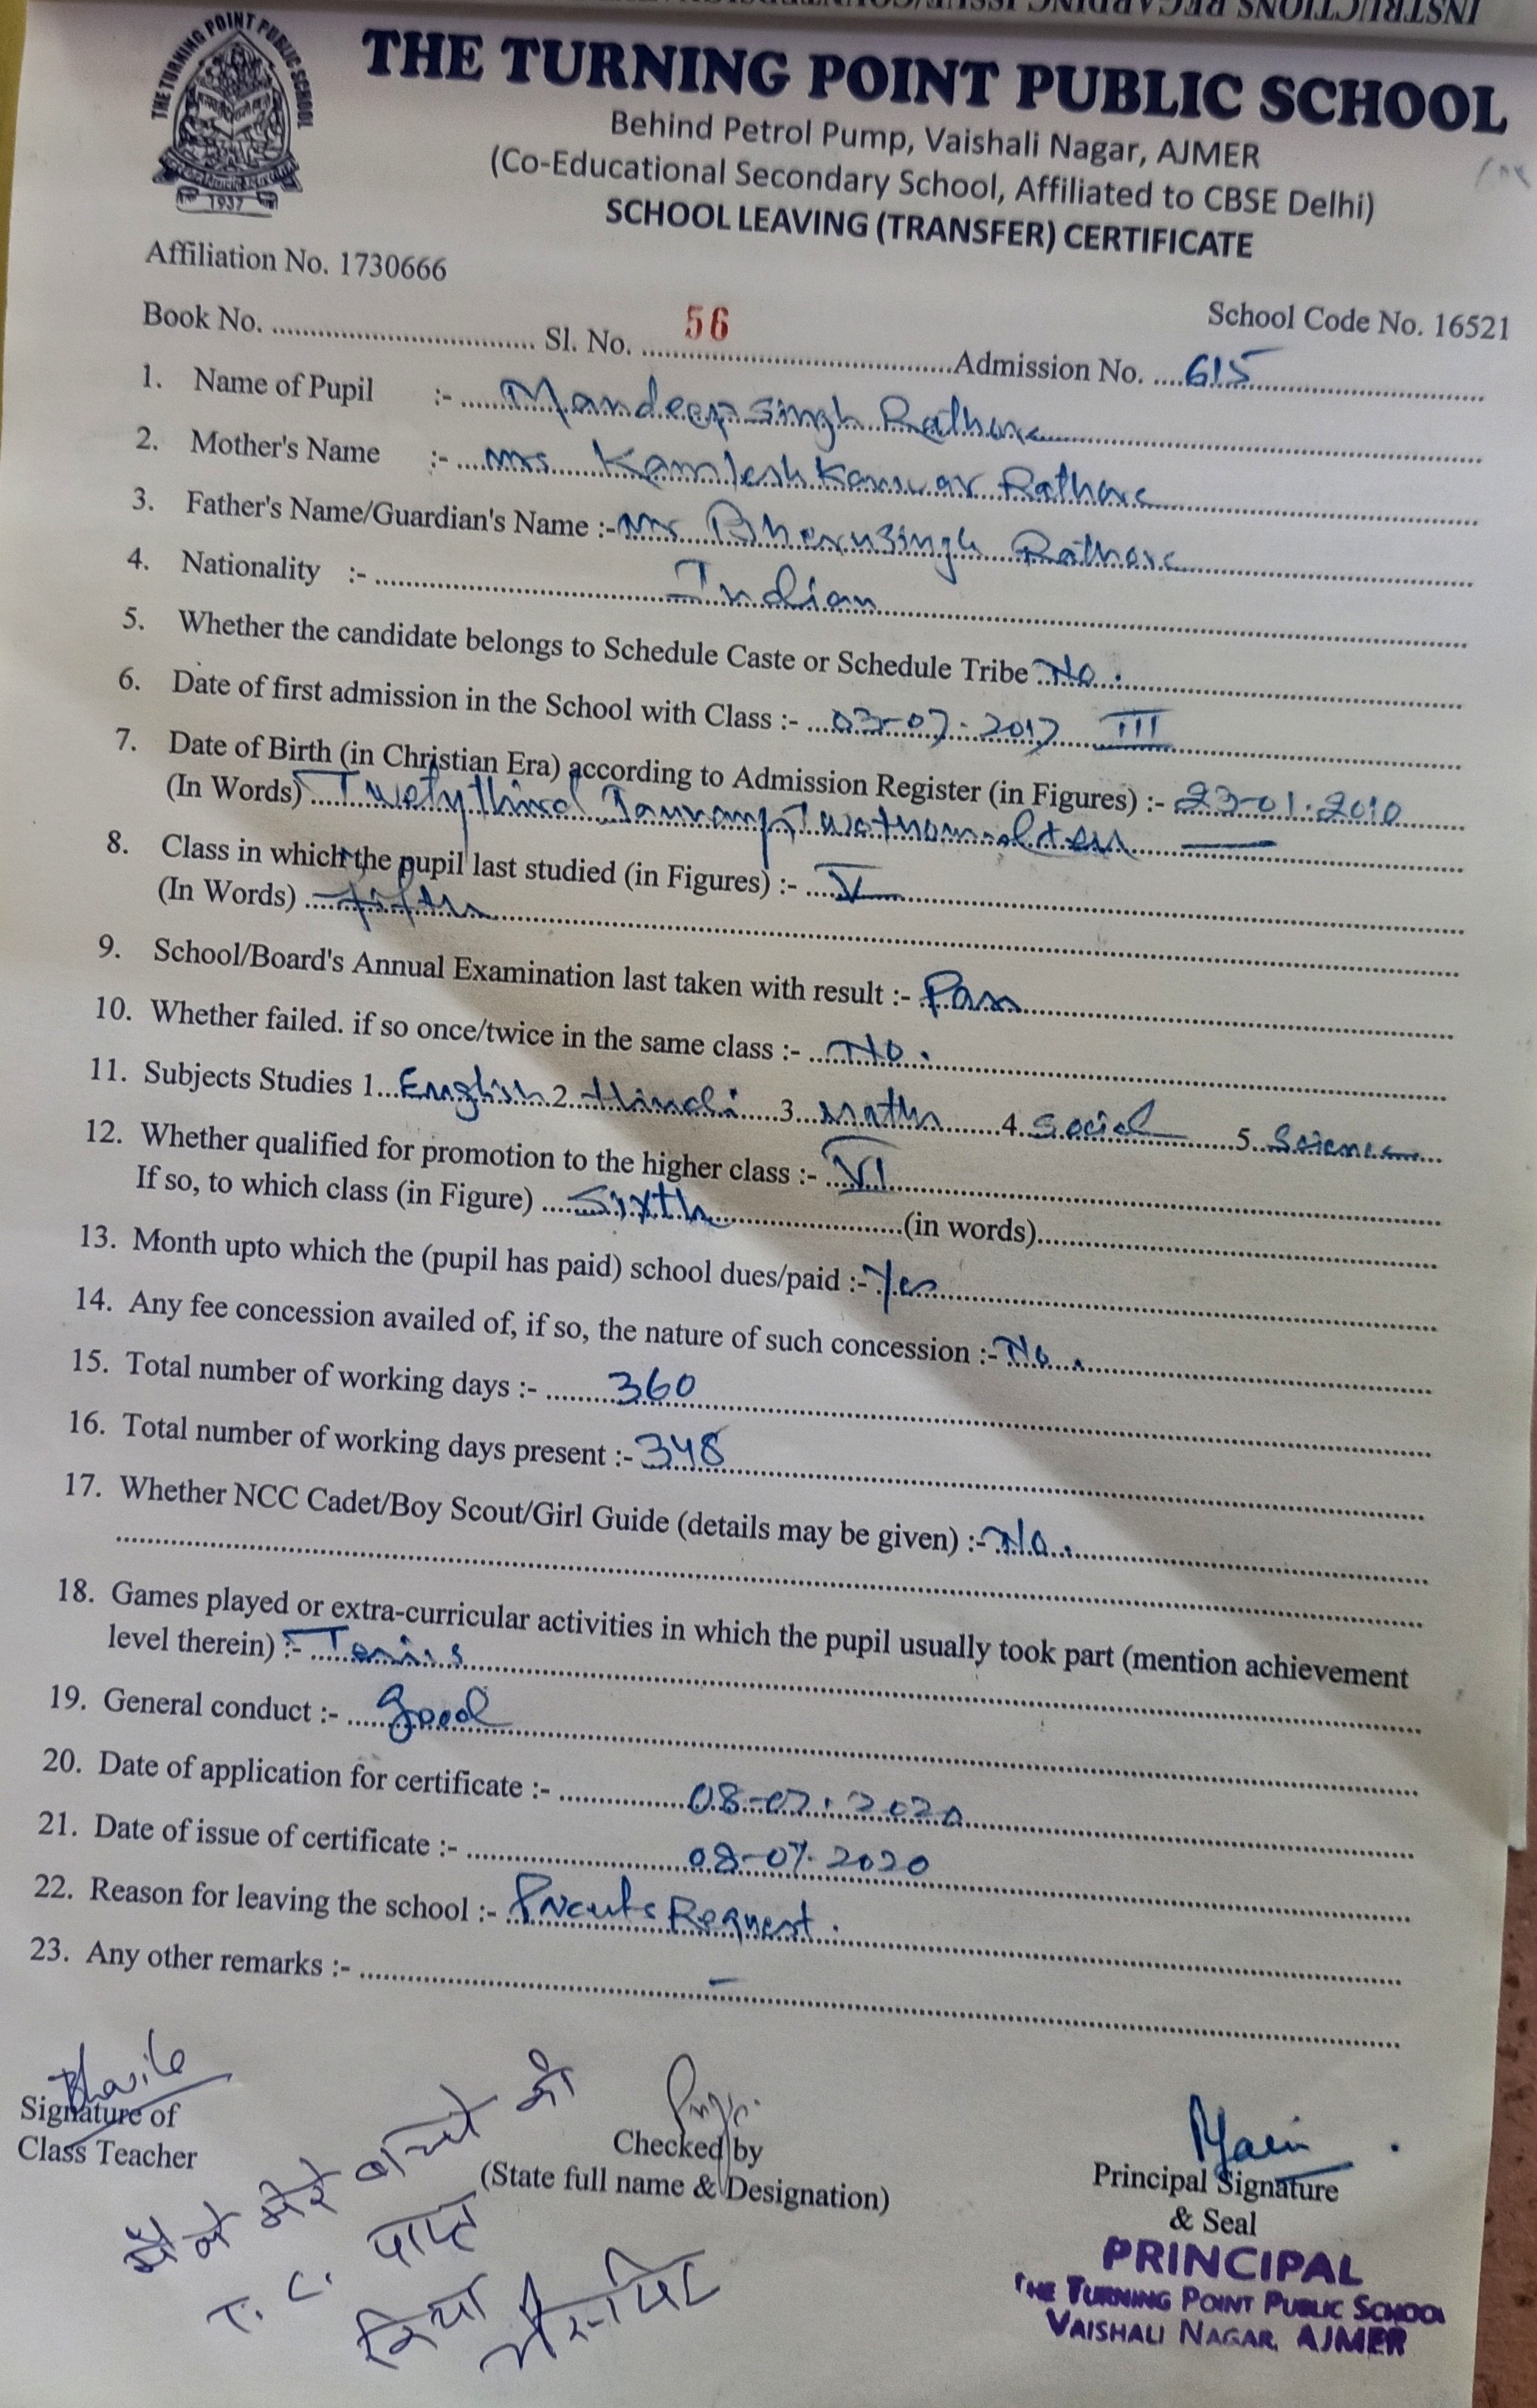 THE TURNING POINT PUBLIC SCHOOL
1937
THE TURNING POINT PUBLIC SCHOOL
Behind Petrol Pump, Vaishali Nagar, AJMER
(Co-Educational Secondary School, Affiliated to CBSE Delhi)
SCHOOL LEAVING (TRANSFER) CERTIFICATE
Affiliation No. 1730666
School Code No. 16521
Book No. .......... Sl. No. 56 Admission No. 615
1. Name of Pupil :- Mandeep Singh Rathore
2. Mother's Name :- Mrs Kamlesh Kanwar Rathore
3. Father's Name/Guardian's Name :- Mr Bherusingh Rathore
4. Nationality :- Indian
5. Whether the candidate belongs to Schedule Caste or Schedule Tribe No.
6. Date of first admission in the School with Class :- 03-07-2017 III
7. Date of Birth (in Christian Era) according to Admission Register (in Figures) :- 23-01-2010
(In Words) Twety third January Twothousand ten
8. Class in which the pupil last studied (in Figures) :- V
(In Words) fifth
9. School/Board's Annual Examination last taken with result :- Pass
10. Whether failed. if so once/twice in the same class :- No.
11. Subjects Studies 1. English 2. Hindi 3. Maths 4. Social 5. Science
12. Whether qualified for promotion to the higher class :- VI
If so, to which class (in Figure) Sixth (in words)
13. Month upto which the (pupil has paid) school dues/paid :- Yes
14. Any fee concession availed of, if so, the nature of such concession :- No.
15. Total number of working days :- 360
16. Total number of working days present :- 348
17. Whether NCC Cadet/Boy Scout/Girl Guide (details may be given) :- No.
18. Games played or extra-curricular activities in which the pupil usually took part (mention achievement
level therein) :- Tenis
19. General conduct :- good
20. Date of application for certificate :- 08-07-2020
21. Date of issue of certificate :- 08-07-2020
22. Reason for leaving the school :- Request.
23. Any other remarks :- –
Signature of
Class Teacher
Checked by
(State full name & Designation)
Principal Signature
& Seal
PRINCIPAL
THE TURNING POINT PUBLIC SCHOOL
VAISHALI NAGAR, AJMER
मैं ने मेरे बच्चे की
T.C. प्राप्त
किया